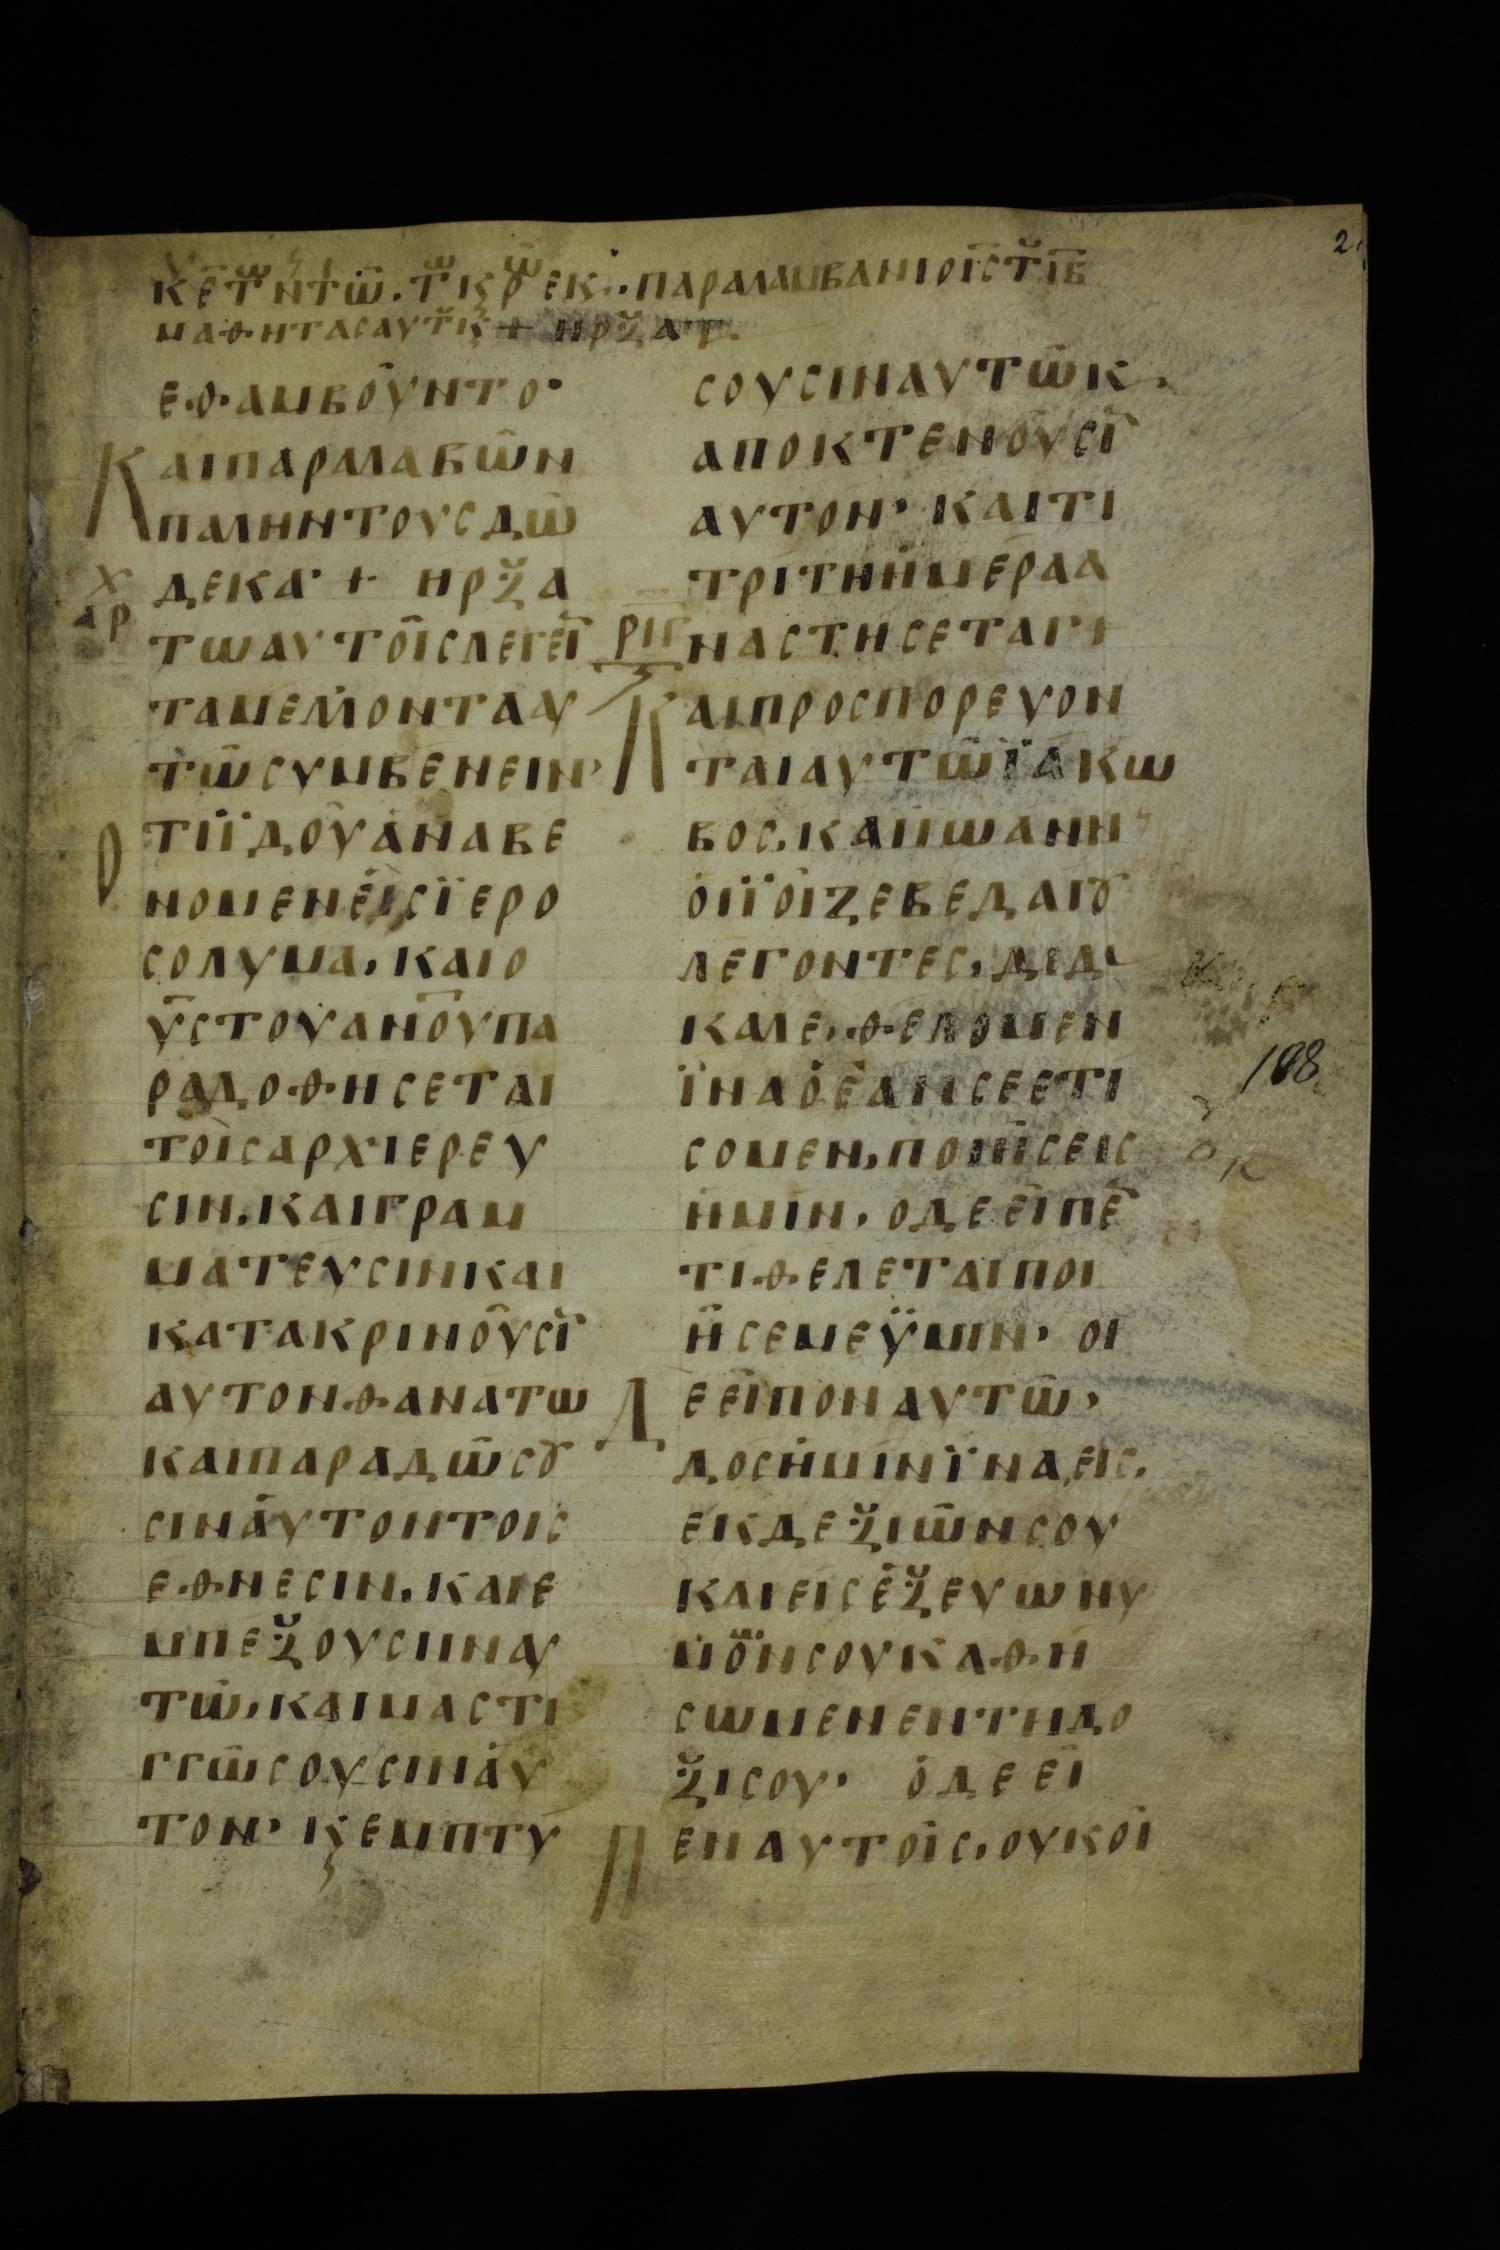 ΕΘΑΜΒΟΥΝΤΟ·
ΚΑΙΠΑΡΑΛΑΒΩΝ
ΠΑΛΗΝΤΟΥΣΔΩ
ΔΕΚΑ· + ΗΡΞΑ
ΤΩΑΥΤΟΙΣΛΕΓΕΙ
ΤΑΜΕΛΛΟΝΤΑΑΥ
ΤΩΣΥΜΒΕΝΕΙΝ·
ΟΤΙΪΔΟΥΑΝΑΒΕ
ΝΟΜΕΝΕΙΣΪΕΡΟ
ΣΟΛΥΜΑ, ΚΑΙΟ
ΥΣΤΟΥΑΝΟΥΠΑ
ΡΑΔΟΘΗΣΕΤΑΙ
ΤΟΙΣΑΡΧΙΕΡΕΥ
ΣΙΝ, ΚΑΙΓΡΑΜ
ΜΑΤΕΥΣΙΝΚΑΙ
ΚΑΤΑΚΡΙΝΟΥΣΙ̅
ΑΥΤΟΝΘΑΝΑΤΩ
ΚΑΙΠΑΡΑΔΩΣΟΥ
ΣΙΝΑΥΤΟΝΤΟΙΣ
ΕΘΝΕΣΙΝ, ΚΑΙΕ
ΜΠΕΞΟΥΣΙΝΑΥ
ΤΩ, ΚΑΙΜΑΣΤΙ
ΓΓΩΣΟΥΣΙΝΑΥ
ΤΟΝ· Κ̧ΕΜΠΤΥ
ΣΟΥΣΙΝΑΥΤΩΚ,
ΑΠΟΚΤΕΝΟΥΣΙ̅
ΑΥΤΟΝ· ΚΑΙΤΙ
ΤΡΙΤΗΗΜΕΡΑΑ
ΝΑΣΤΗΣΕΤΑΙ
ΡΙΓ
ΚΑΙΠΡΟΣΠΟΡΕΥΟΝ
ΤΑΙΑΥΤΩΪΑΚΩ
ΒΟΣ, ΚΑΙΙΩΑΝΝ
ΟΙΪΟΙΖΕΒΕΔΑΙΟΥ
ΛΕΓΟΝΤΕΣ, ΔΙΔΑ
ΚΑΛΕ, ΘΕΛΟΜΕΝ
ΪΝΑΟΕΑΝΣΕΕΤΙ
ΣΟΜΕΝ, ΠΟΙΗΣΕΙΣ
ΗΜΙΝ, ΟΔΕΕΙΠΕ̅
ΤΙΘΕΛΕΤΑΙΠΟΙ
ΗΣΕΜΕΫΜΙΝ· ΟΙ
ΔΕΕΙΠΟΝΑΥΤΩ,
ΔΟΣΗΜΙΝΪΝΑΕΙΣ,
ΕΚΔΕΞΙΩΝΣΟΥ
ΚΑΙΕΙΣΕΞΕΥΩΝΥ
ΜΟΝΣΟΥΚΑΘΗ
ΣΩΜΕΝΕΝΤΗΔΟ
ΞΙΣΟΥ· ΟΔΕΕΙ
ΠΕΝΑΥΤΟΙΣ, ΟΥΚΟΙ
188